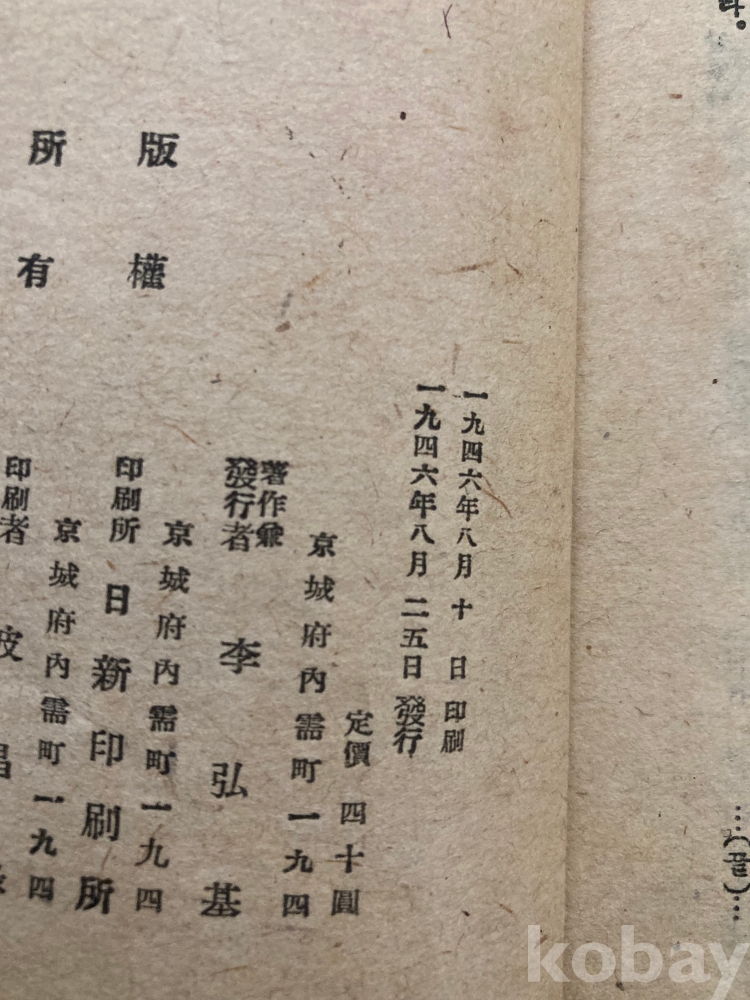 라.
……(끝)…
一九四六年八月 十 日 印刷
一九四六年八月 二五日 發行
定價 四十圓
京城府內需町一九四
著作兼
發行者 李弘基
京城府內需町一九四
印刷所 日新印刷所
京城府內需町一九四
印刷者
昌
版權
所有
kobay